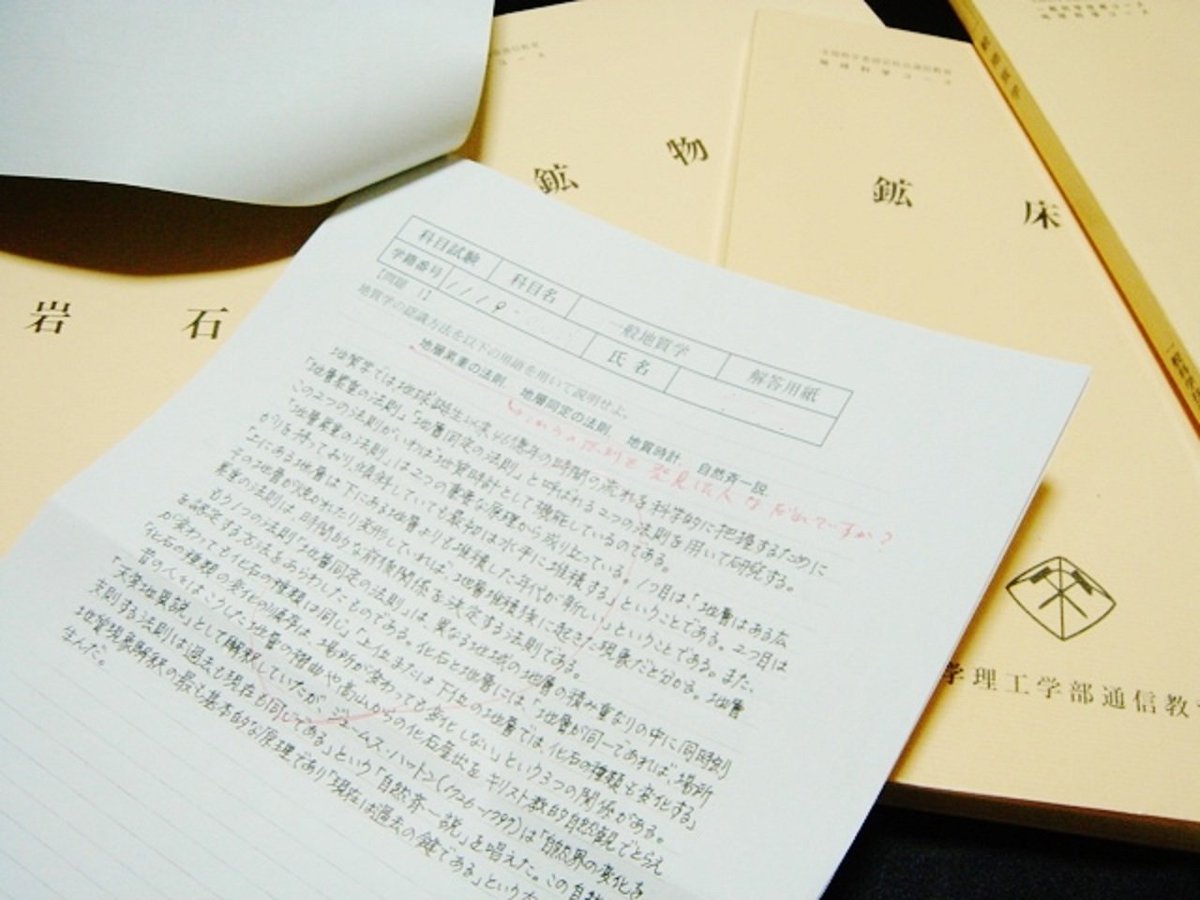 鉱物
鉱床
岩石
科目試験 科目名 一般地質学 解答用紙
学籍番号 1119 氏名
【問題 1】
地質学の認識方法を以下の用語を用いて説明せよ。
地層累重の法則 地層同定の法則 地質時計 自然斉一説
これらの法則を発見した人はだれですか?
地質学では地球誕生以来46億年の時間の流れを科学的に把握するために
「地層累重の法則」「地層同定の法則」と呼ばれる2つの法則を用いて研究する。
この2つの法則がいわば「地質時計」として機能しているのである。
「地層累重の法則」は2つの重要な原理から成り立っている。1つ目は「地層はある広
がりを持っており、傾斜していても最初は水平に堆積する」ということである。2つ目は
「上にある地層は下にある地層よりも堆積した年代が新しい」ということである。また、
その地層が焼かれたり変形していれば、地層堆積後に起きた現象だと分かる。地層
累重の法則は時間的な前後関係を決定する法則である。
もう1つの法則「地層同定の法則」は異なる地域の地層の積み重なりの中に同時刻
を認定する方法をあらわしたものである。化石と地層には「地層が同一であれば、場所
が変わっても化石の種類は同じ」「上位または下位の地層では化石の種類も変化する」
「化石の種類の変化の順序は、場所が変わっても変化しない」という3つの関係がある。
昔の人々はこうした地層の褶曲や高山からの化石産出をキリスト教的自然観でとらえ
「天変地異説」として解釈していたが、ジェームス・ハットン(1726-1797)は「自然界の変化を
支配する法則は過去も現在も同じである」という「自然斉一説」を唱えた。この自然
地質現象解釈の最も基本的な原理であり「現在は過去の鍵である」という
生んだ。
学理工学部通信教